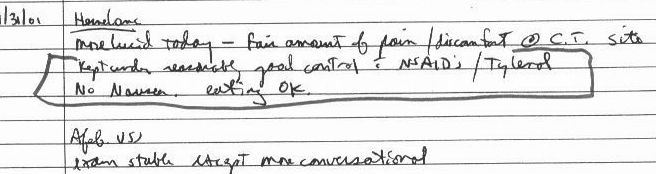 1/31/01
more lucid today - Fair amount of pain / discomfort @ C.T. site
Kept under reasonable, good control c̄ NSAID's / Tylenol
No Nausea. eating OK.
Afeb. VSS
exam stable except more conversational